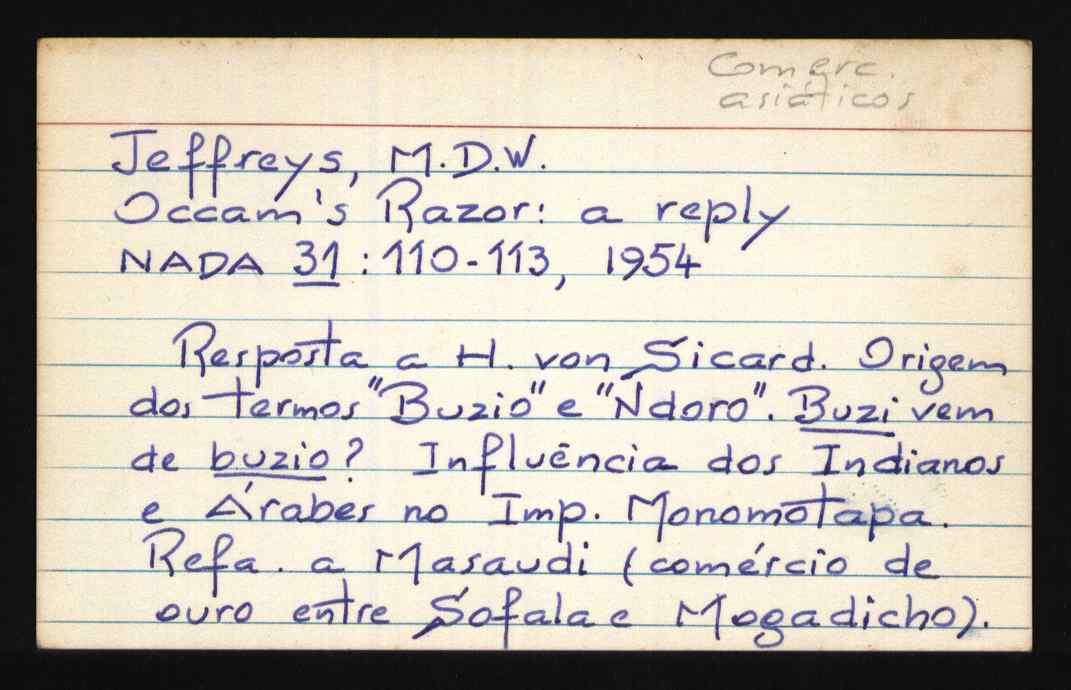 Comerc.
asiáticos
Jeffreys, M.D.W.
Occam's Razor: a reply
NADA 31 : 110-113, 1954
Resposta a H. von Sicard. Origem
dos termos "Buzio" e "Ndoro". Buzi vem
de buzio? Influência dos Indianos
e Árabes no Imp. Monomotapa.
Refa. a Masaudi (comércio de
ouro entre Sofala e Mogadicho).